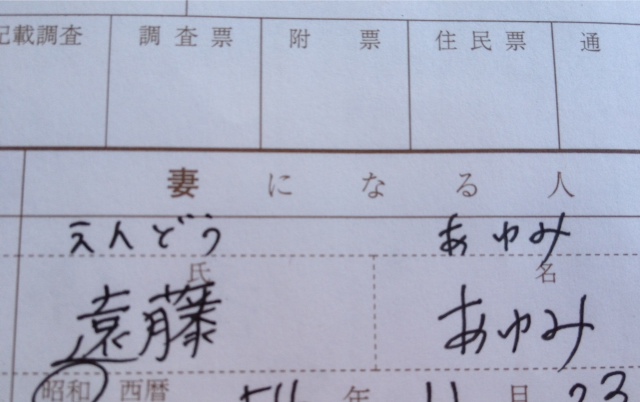 記載調査 調査票 附票 住民票 通
妻になる人
えんどう あゆみ
氏 名
遠藤 あゆみ
昭和 西暦 54 年 11 月 23